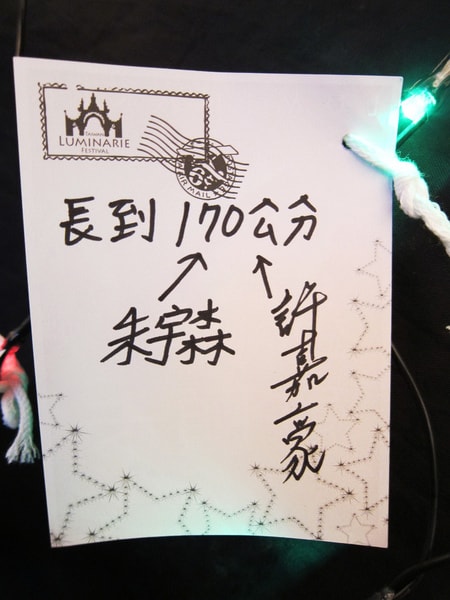 TAIWAN
LUMINARIE
FESTIVAL
AIR MAIL
長到170公分
朱宇森
許嘉豪